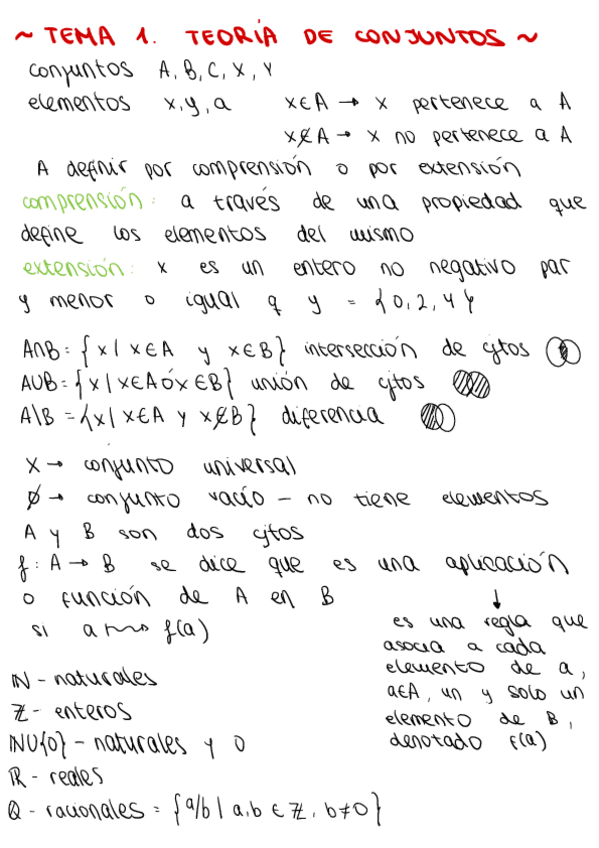 ~ TEMA 1. TEORÍA DE CONJUNTOS ~
conjuntos A, B, C, X, Y
elementos x, y, a x∈A → x pertenece a A
x∉A → x no pertenece a A
A definir por comprensión o por extensión
comprensión: a través de una propiedad que
define los elementos del mismo
extensión: x es un entero no negativo par
y menor o igual q y = {0, 2, 4}
A∩B = {x | x∈A y x∈B} intersección de cjtos
A∪B = {x | x∈A ó x∈B} unión de cjtos
A\B = {x | x∈A y x∉B} diferencia
X → conjunto universal
∅ → conjunto vacío – no tiene elementos
A y B son dos cjtos
f: A → B se dice que es una aplicación
o función de A en B
si a ⟼ f(a)
↓
es una regla que
asocia a cada
elemento de a,
a∈A, un y solo un
elemento de B,
denotado f(a)
ℕ - naturales
ℤ - enteros
ℕ∪{0} - naturales y 0
ℝ - reales
ℚ - racionales = {a/b | a,b ∈ ℤ, b≠0}